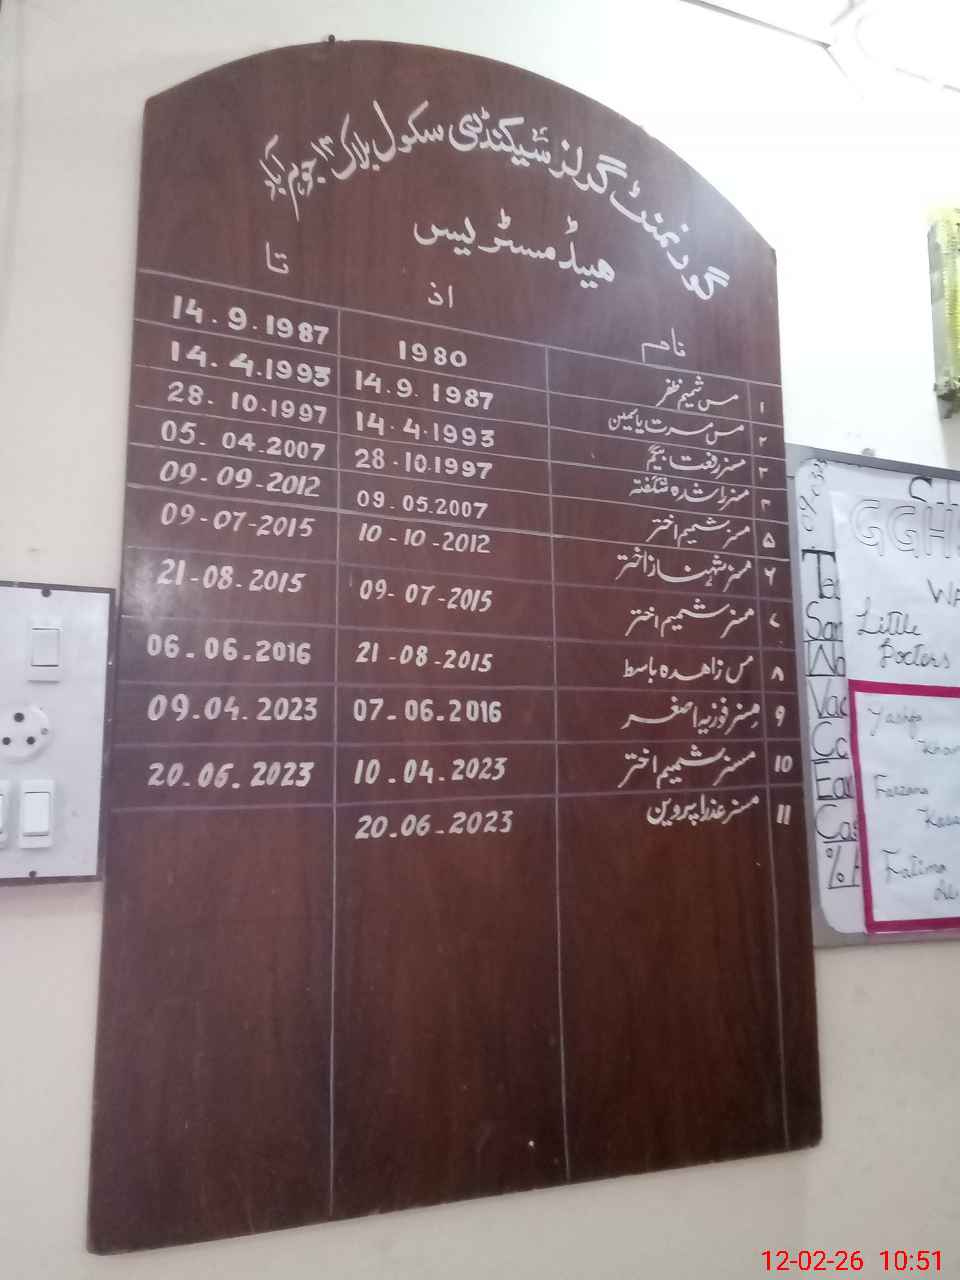 گورنمنٹ گرلز سیکنڈری سکول بلاک ۱۳ جوہرآباد
ہیڈ مسٹریس
نام از تا
۱ مس شمیم ظفر 1980 14.9.1987
۲ مس مسرت یاسمین 14.9.1987 14.4.1993
۳ مسز رفعت بیگم 14.4.1993 28.10.1997
۴ مسز راشدہ شگفتہ 28-10.1997 05-04.2007
۵ مسز شمیم اختر 09.05.2007 09-09-2012
۶ مسز شہناز اختر 10-10-2012 09-07-2015
۷ مسز شمیم اختر 09-07-2015 21-08.2015
۸ مس زاہدہ باسط 21-08-2015 06.06.2016
۹ مسز فوزیہ اصغر 07-06.2016 09.04.2023
10 مسز شمیم اختر 10.04.2023 20.06.2023
11 مسز عذرا پروین 20.06-2023
GGH
Little
Doctors
Yashfa
Farzana
Fatima
12-02-26 10:51